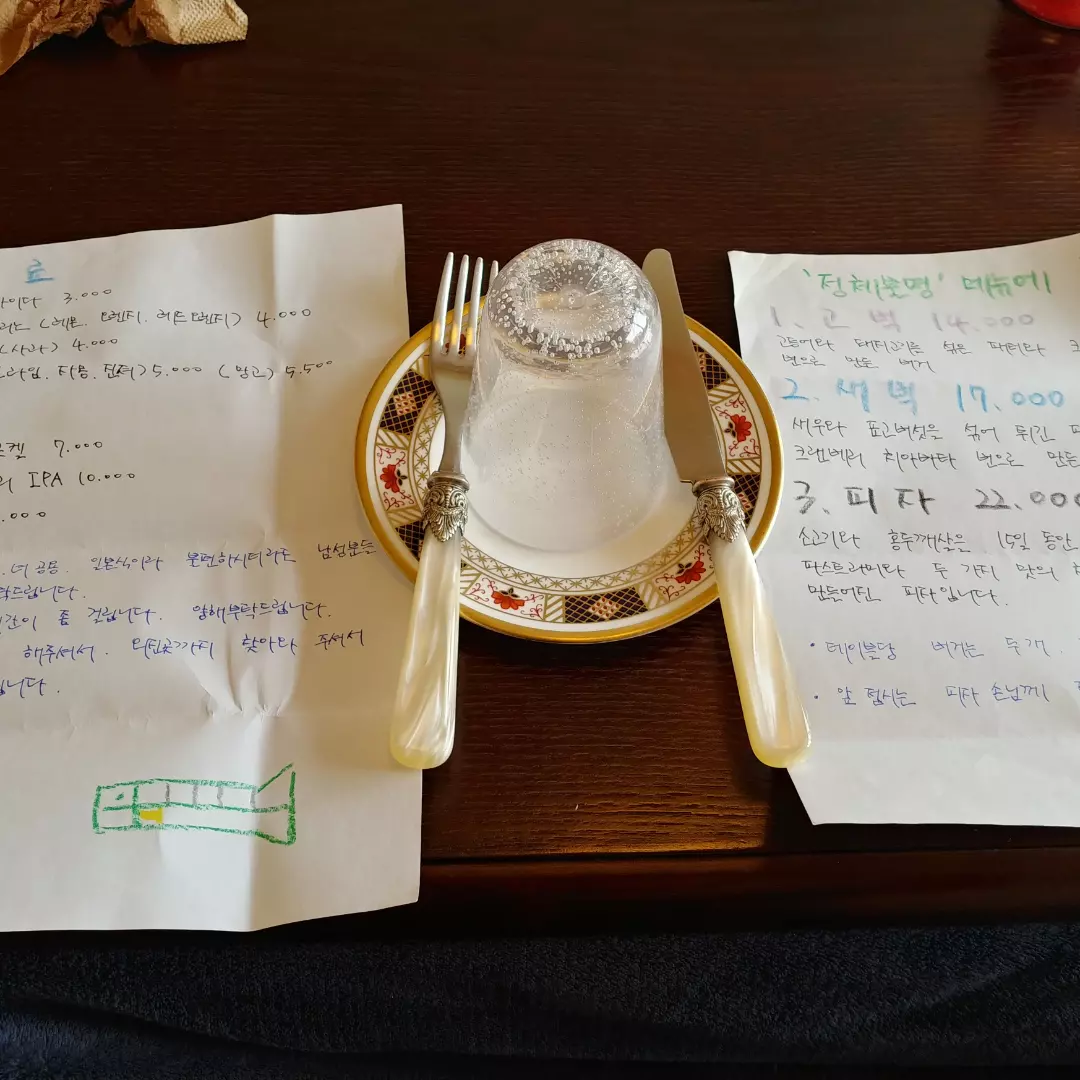 료
이다 3.000
4.000
(사과) 4.000
라임. 자몽. 5.000 (망고) 5.500
켈 7.000
의 IPA 10.000
.000
. 너 공용. 일본식이라 불편하시더라도 남성분들
탁드립니다.
간이 좀 걸립니다. 양해부탁드립니다.
해주셔서. 외진곳까지 찾아와 주셔서
니다.
'정체불명' 메뉴에
1. 고벅 14.000
고등어와 돼지고기를 섞은 패티와
번으로 만든 버거
2. 새벅 17.000
새우와 표고버섯을 섞어 튀긴
크랜베리 치아바타 번으로 만든
3. 피자 22.000
소고기와 홍두깨살은 15일 동안
파스트라미와 두 가지 맛의
만들어진 피자입니다.
• 테이블당 버거는 두개.
• 앞 접시는 피자 손님께